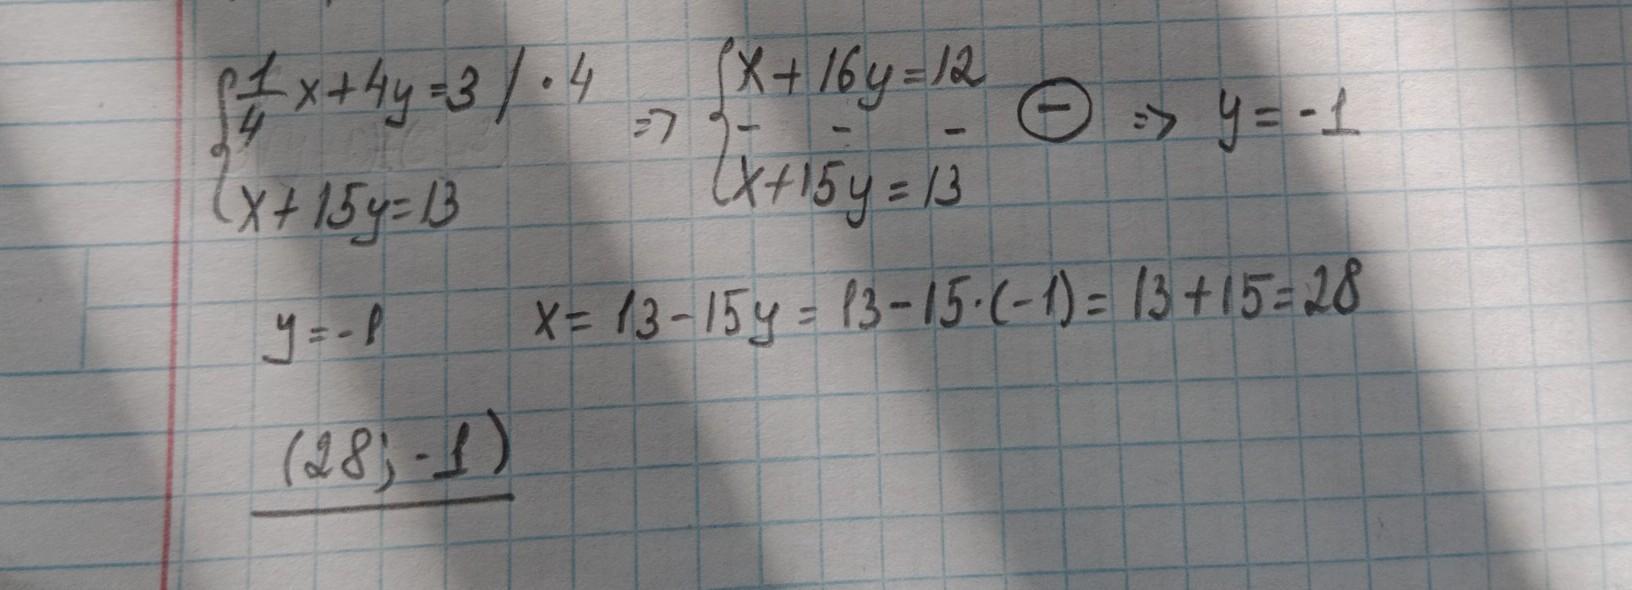 { 1/4 x + 4y = 3 / · 4
x + 15y = 13
=> { x + 16y = 12
- - - ⊖ => y = -1
x + 15y = 13
y = -1 x = 13 - 15y = 13 - 15 · (-1) = 13 + 15 = 28
(28; -1)